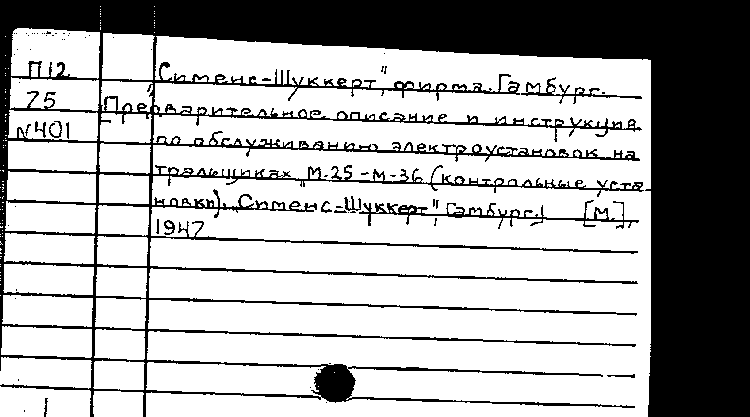 П12 "Сименс-Шуккерт", фирма. Гамбург.
75 [Предварительное описание и инструкция
N401 по обслуживанию электроустановок на
тральщиках "М-25-М-36 (контрольные уста-
новки). „Сименс-Шуккерт", Гамбург.] [М.],
1947